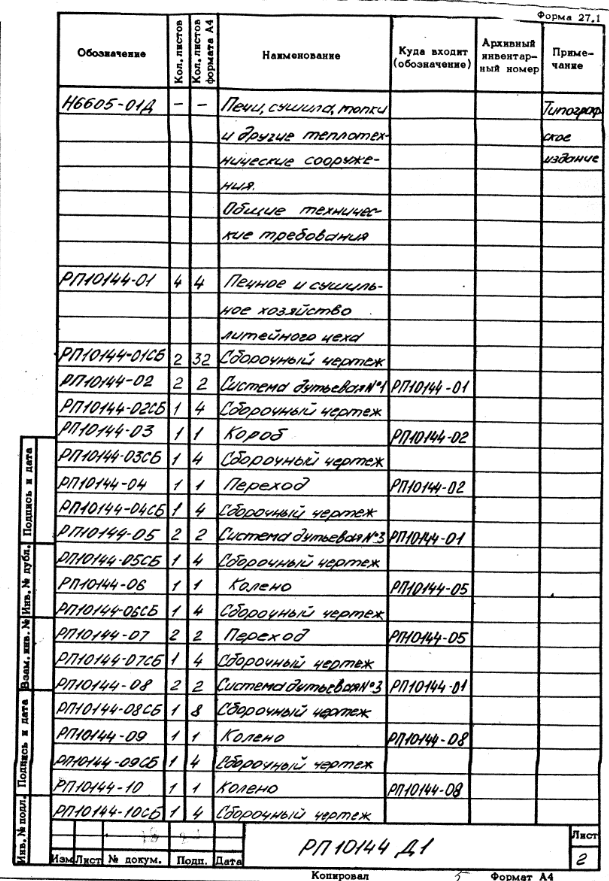 Форма 27.1
Обозначение Кол. листов Кол. листов формата А4 Наименование Куда входит (обозначение) Архивный инвентарный номер Примечание
Н6605-01Д - - Печи, сушила, топки Типограф
и другие теплотех- ское
нические сооруже- издание
ния.
Общие техничес-
кие требования
РП10144-01 4 4 Печное и сушиль-
ное хозяйство
литейного цеха
РП10144-01СБ 2 32 Сборочный чертеж
РП10144-02 2 2 Система дутьевая №1 РП10144-01
РП10144-02СБ 1 4 Сборочный чертеж
РП10144-03 1 1 Короб РП10144-02
РП10144-03СБ 1 4 Сборочный чертеж
РП10144-04 1 1 Переход РП10144-02
РП10144-04СБ 1 4 Сборочный чертеж
РП10144-05 2 2 Система дутьевая №3 РП10144-01
РП10144-05СБ 1 4 Сборочный чертеж
РП10144-06 1 1 Колено РП10144-05
РП10144-06СБ 1 4 Сборочный чертеж
РП10144-07 2 2 Переход РП10144-05
РП10144-07СБ 1 4 Сборочный чертеж
РП10144-08 2 2 Система дутьевая №3 РП10144-01
РП10144-08СБ 1 8 Сборочный чертеж
РП10144-09 1 1 Колено РП10144-08
РП10144-09СБ 1 4 Сборочный чертеж
РП10144-10 1 1 Колено РП10144-08
РП10144-10СБ 1 4 Сборочный чертеж
Инв. № подл. Подпись и дата Взам. инв. № Инв. № дубл. Подпись и дата
РП 10144 Д1
Лист
2
Изм Лист № докум. Подп. Дата
Копировал 5 Формат А4